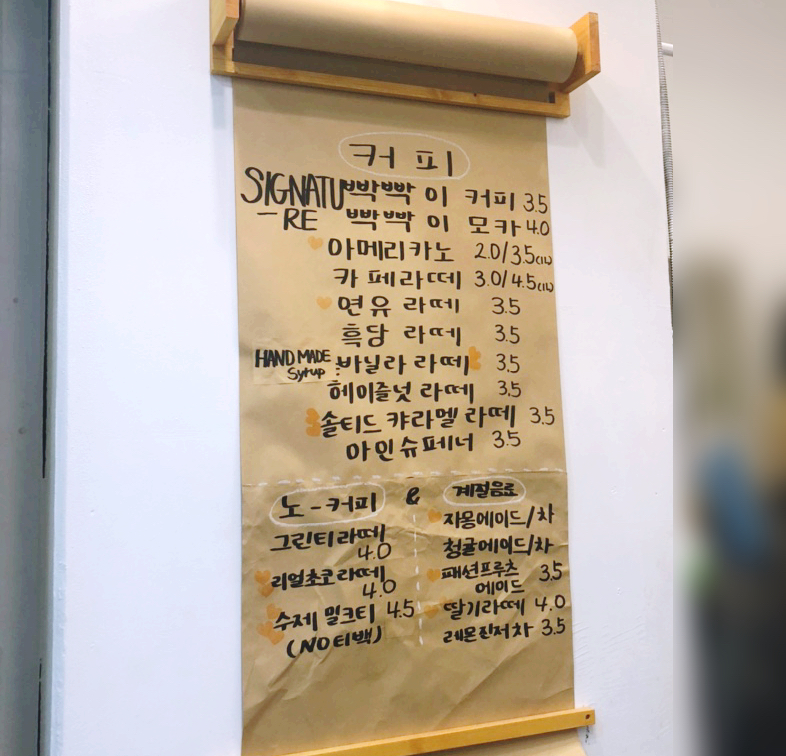 커피
SIGNATU 빡빡이 커피 3.5
-RE 빡빡이 모카 4.0
아메리카노 2.0/3.5(1L)
카페라떼 3.0/4.5(1L)
연유 라떼 3.5
흑당 라떼 3.5
HAND MADE Syrup : 바닐라 라떼 3.5
헤이즐넛 라떼 3.5
솔티드 캬라멜 라떼 3.5
아인슈페너 3.5
노-커피 & 계절음료
그린티라떼 4.0
리얼초코라떼 4.0
수제 밀크티 4.5
(NO티백)
자몽에이드/차
청귤에이드/차
패션프루츠 3.5
에이드
딸기라떼 4.0
레몬진저차 3.5